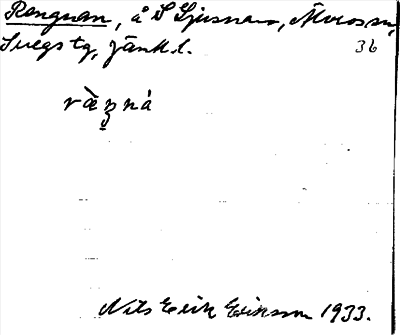 Rengnan, å S Ljusnan, Älvros sn,
Svegs tg, Jämtl. 36
ræ̀ŋná
Nils Erik Eriksson 1933.